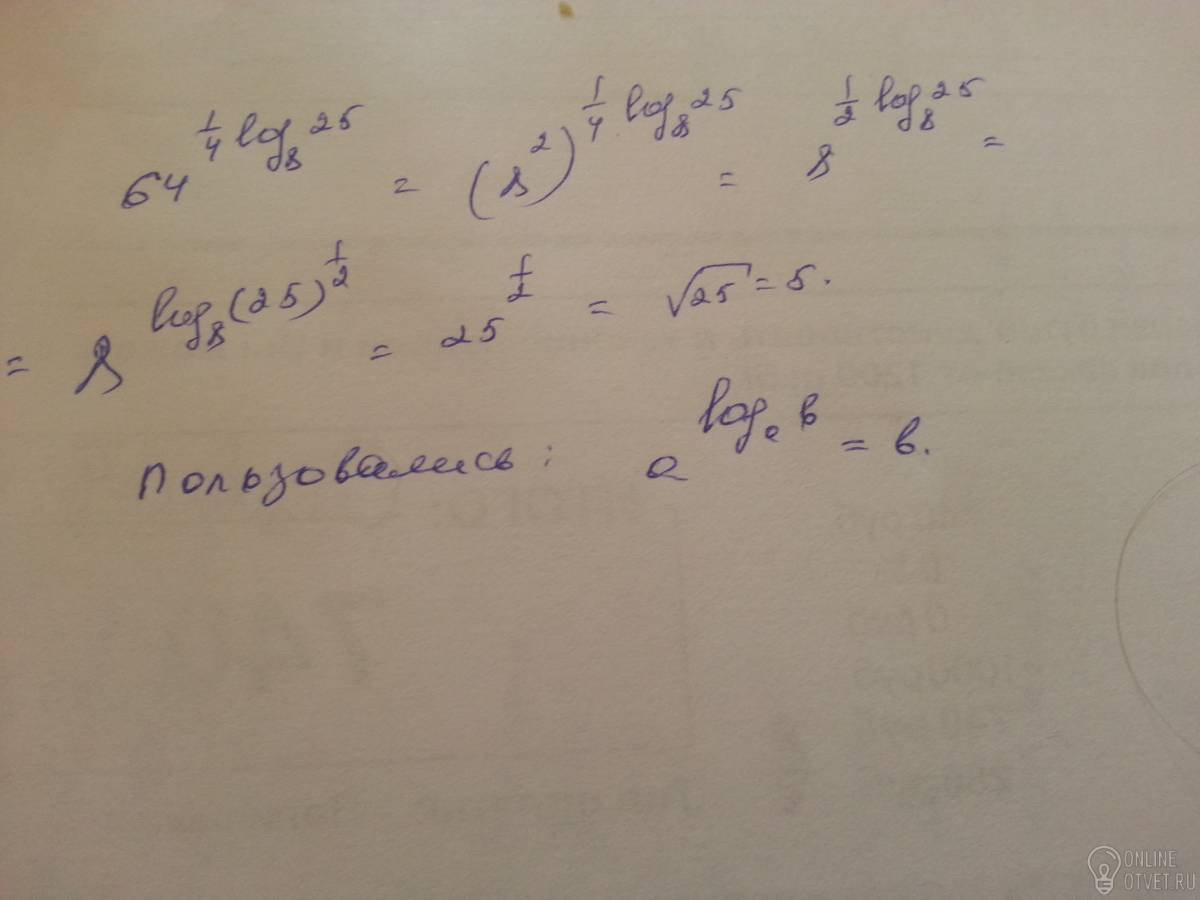 64^{\frac{1}{4} log_8 25} = (8^2)^{\frac{1}{4} log_8 25} = 8^{\frac{1}{2} log_8 25} =
= 8^{log_8 (25)^{\frac{1}{2}}} = 25^{\frac{1}{2}} = √25 = 5.
Пользовались: a^{log_a в} = в.
ONLINE
OTVET.RU